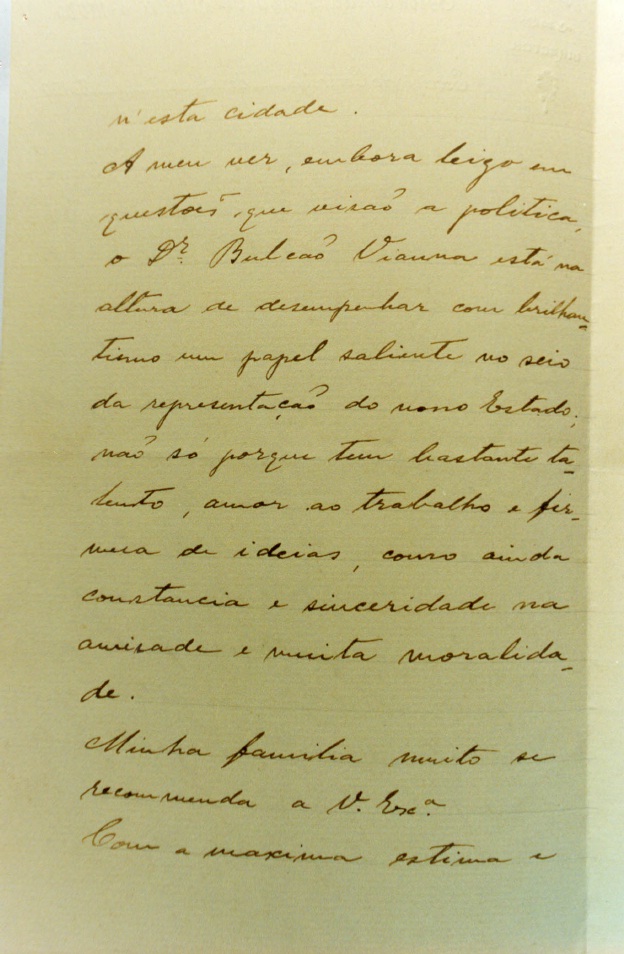 n'esta cidade.
A meu ver, embora leigo em
questões, que visão a politica,
o Dr. Bulcão Vianna está na
altura de desempenhar com brilhan-
tismo um papel saliente no seio
da representação do nosso Estado;
não só porque tem bastante ta-
lento, amor ao trabalho e fir-
mesa de ideias, como ainda
constancia e sinceridade na
amisade e muita moralida-
de.
Minha familia muito se
recommenda a V. Exª.
Com a maxima estima e